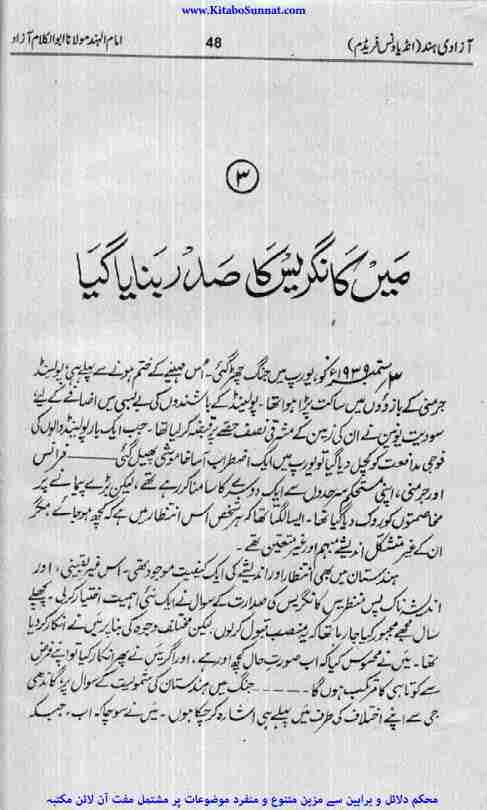 www.KitaboSunnat.com
آزادی ہند (انڈیا ونس فریڈم)
48
امام الہند مولانا ابوالکلام آزاد
۳
مَیں کانگریس کا صدر بنایا گیا
۳؍ستمبر ۱۹۳۹ء کو یورپ میں جنگ چھڑ گئی۔ اس مہینے کے ختم ہونے سے پہلے ہی پولینڈ
جرمنی کے بازوؤں میں ساکت پڑا ہوا تھا۔ پولینڈ کے باشندوں کی بے بسی میں اضافے کے لیے
سوویت یونین نے ان کی زمین کے مشرقی نصف حصّے پر قبضہ کر لیا تھا۔ جب ایک بار پولینڈ والوں کی
فوجی مدافعت کو کچل دیا گیا تو یورپ میں ایک اضطراب آسا خاموشی پھیل گئی ـــــــ فرانس
اور جرمنی، اپنی مستحکم سرحدوں سے ایک دوسرے کا سامنا کر رہے تھے، لیکن بڑے پیمانے پر
مخاصمتوں کو روک دیا گیا تھا۔ ایسا لگتا تھا کہ ہر شخص اس انتظار میں ہے کہ کچھ ہو جائے مگر
ان کے غیر متشکّل اندیشے مبہم اور غیر متعین تھے۔
ہندستان میں بھی انتظار اور اندیشے کی ایک کیفیت موجود تھی۔ اس غیر یقینی، اور
اندیشناک پس منظر میں کانگریس کی صدارت کے سوال نے ایک نئی اہمیت اختیار کر لی۔ پچھلے
سال مجھے مجبور کیا جا رہا تھا کہ یہ منصب قبول کر لوں، لیکن مختلف وجوہ کی بنا پر میں نے انکار کر دیا
تھا۔ میں نے محسوس کیا کہ اب صورتِ حال کچھ اور ہے، اور اگر میں نے پھر انکار کیا تو اپنے فرض
سے کوتاہی کا مرتکب ہوں گا ــــــ جنگ میں ہندستان کی شمولیت کے سوال پر گاندھی
جی سے اپنے اختلاف کی طرف میں پہلے ہی اشارہ کر چکا ہوں۔ میں نے سوچا کہ اب، جبکہ
محکم دلائل و براہین سے مزین متنوع و منفرد موضوعات پر مشتمل مفت آن لائن مکتبہ